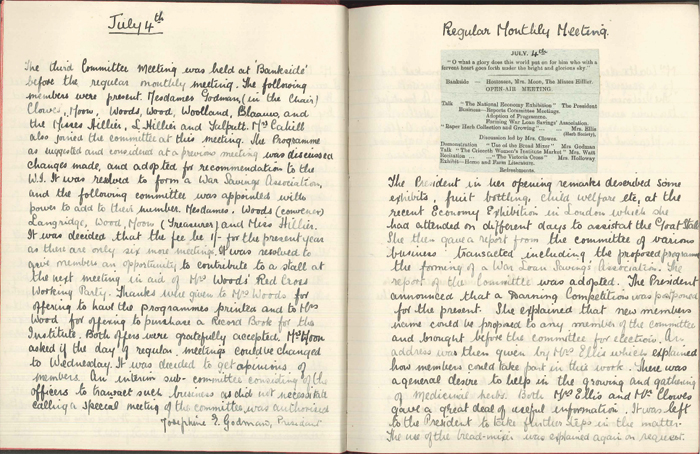 July 4th
The third Committee Meeting was held at 'Bankside'
before the regular monthly meeting. The following
members were present. Mesdames Godman, (in the Chair)
Clowes, Moon, Woods, Wood, Woolland, Blaauw, and
the Misses Hillier, L. Hillier and Fulputt. Mrs Cahill
also joined the committee at this meeting. The Programme
as suggested and considered at a previous meeting was discussed
changes made, and adopted for recommendation to the
W.I. It was resolved to form a War Savings Association,
and the following committee was appointed with
power to add to their number. Mesdames. Woods (convener)
Langridge, Wood, Moon (Treasurer) and Miss Hillier.
It was decided that the fee be 1/- for the present year
as there are only six more meetings. It was resolved to
give members an opportunity to contribute to a stall at
the next meeting in aid of Mrs Woods' Red Cross
Working Party. Thanks were given to Mrs Woods for
offering to have the programmes printed and to Mrs
Wood for offering to purchase a Record Book for the
Institute. Both offers were gratefully accepted. Mrs Moon
asked if the day of regular meetings could be changed
to Wednesday. It was decided to get opinions of
members. An interim sub-committee consisting of the
officers to transact such business as did not necessitate
calling a special meeting of the committee, was authorised
Josephine F. Godman, President
Regular Monthly Meeting.
JULY. 4th
"O what a glory does this world put on for him who with a
fervent heart goes forth under the bright and glorious sky."
Bankside - Hostesses, Mrs. Moon, The Misses Hillier.
OPEN-AIR MEETING.
Talk "The National Economy Exhibition" The President
Business—Reports Committee Meetings.
Adoption of Programme.
Forming War Loan Savings' Association.
"Paper Herb Collection and Growing" ... Mrs. Ellis
(Slash Society).
Discussion led by Mrs. Clowes.
Demonstration "Use of the Bread Mixer" Mrs Godman
Talk "The Criccieth Women's Institute Market" Mrs. Watt
Recitation ... "The Victoria Cross" Mrs. Holloway
Exhibit—Home and Farm Literature.
Refreshments.
The President in her opening remarks described some
exhibits, fruit bottling, child welfare etc, at the
recent Economy Exhibition in London which she
had attended on different days to assist at the Goat Stall.
She then gave a report from the committee of various
business transacted including the proposed programme
the forming of a War Loan Savings Association. The
report of the Committee was adopted. The President
announced that a Darning Competition was postponed
for the present. She explained that new members
name could be proposed to any member of the committee
and brought before the committee for election. An
address was then given by Mrs Ellis which explained
how members could take part in this work. There was
a general desire to help in the growing and gathering
of medicinal herbs. Both Mrs Ellis and Mrs Clowes
gave a great deal of useful information. It was left
to the President to take further steps in the matter.
The use of the bread-mixer was explained again on request.